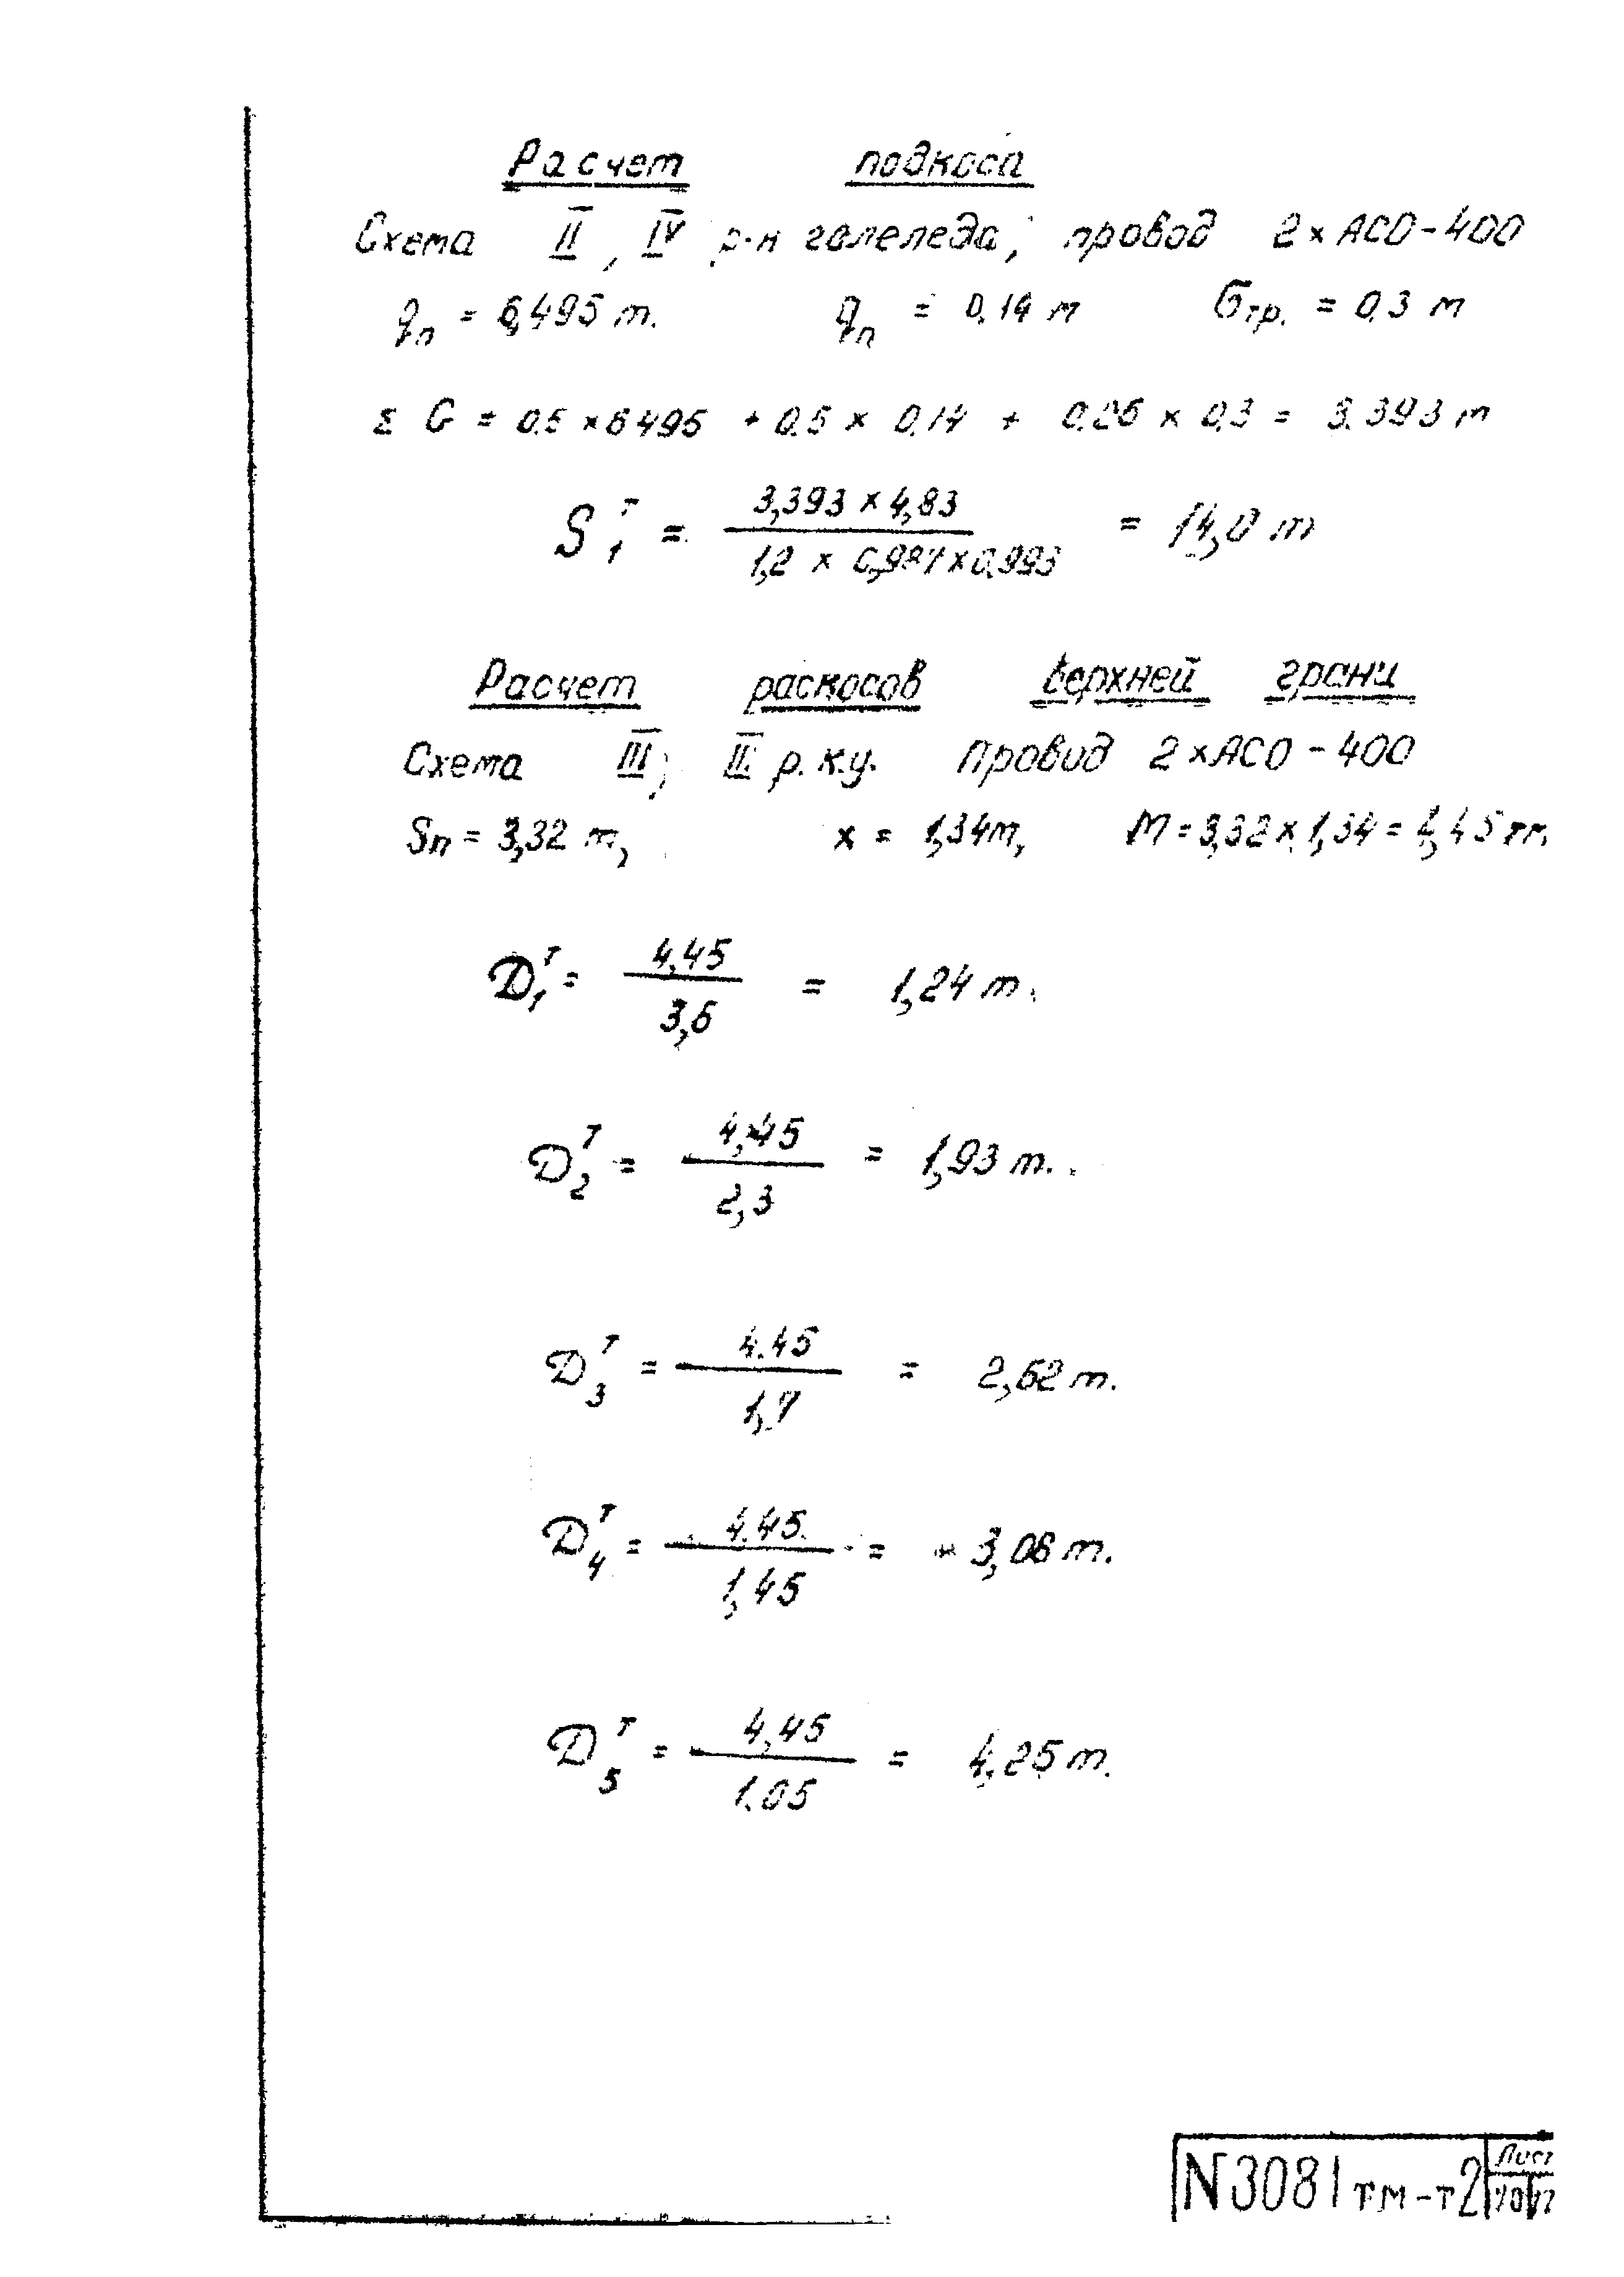 Расчет подкоса
Схема II, IV р-н гололеда, провод 2×АСО-400
qп = 6,495 т. qп = 0,14 т Gтр. = 0,3 т
Σ G = 0.5 × 6495 + 0.5 × 0,14 + 0.26 × 0,3 = 3.393 т
S₁ᵀ = 3,393 × 4,83 / 1,2 × 0,987 × 0.993 = 14,0 т
Расчет раскосов верхней грани
Схема III, II р.к.у. Провод 2×АСО-400
Sп = 3,32 т, x = 1,34м, М = 3,32 × 1,34 = 4,45 тм
D₁ᵀ = 4,45 / 3,6 = 1,24 т.
D₂ᵀ = 4,45 / 2,3 = 1,93 т.
D₃ᵀ = 4.45 / 1,7 = 2,62 т.
D₄ᵀ = 4.45 / 1,45 = 3,06 т.
D₅ᵀ = 4,45 / 1.05 = 4,25 т.
N3081тм-т2 Лист